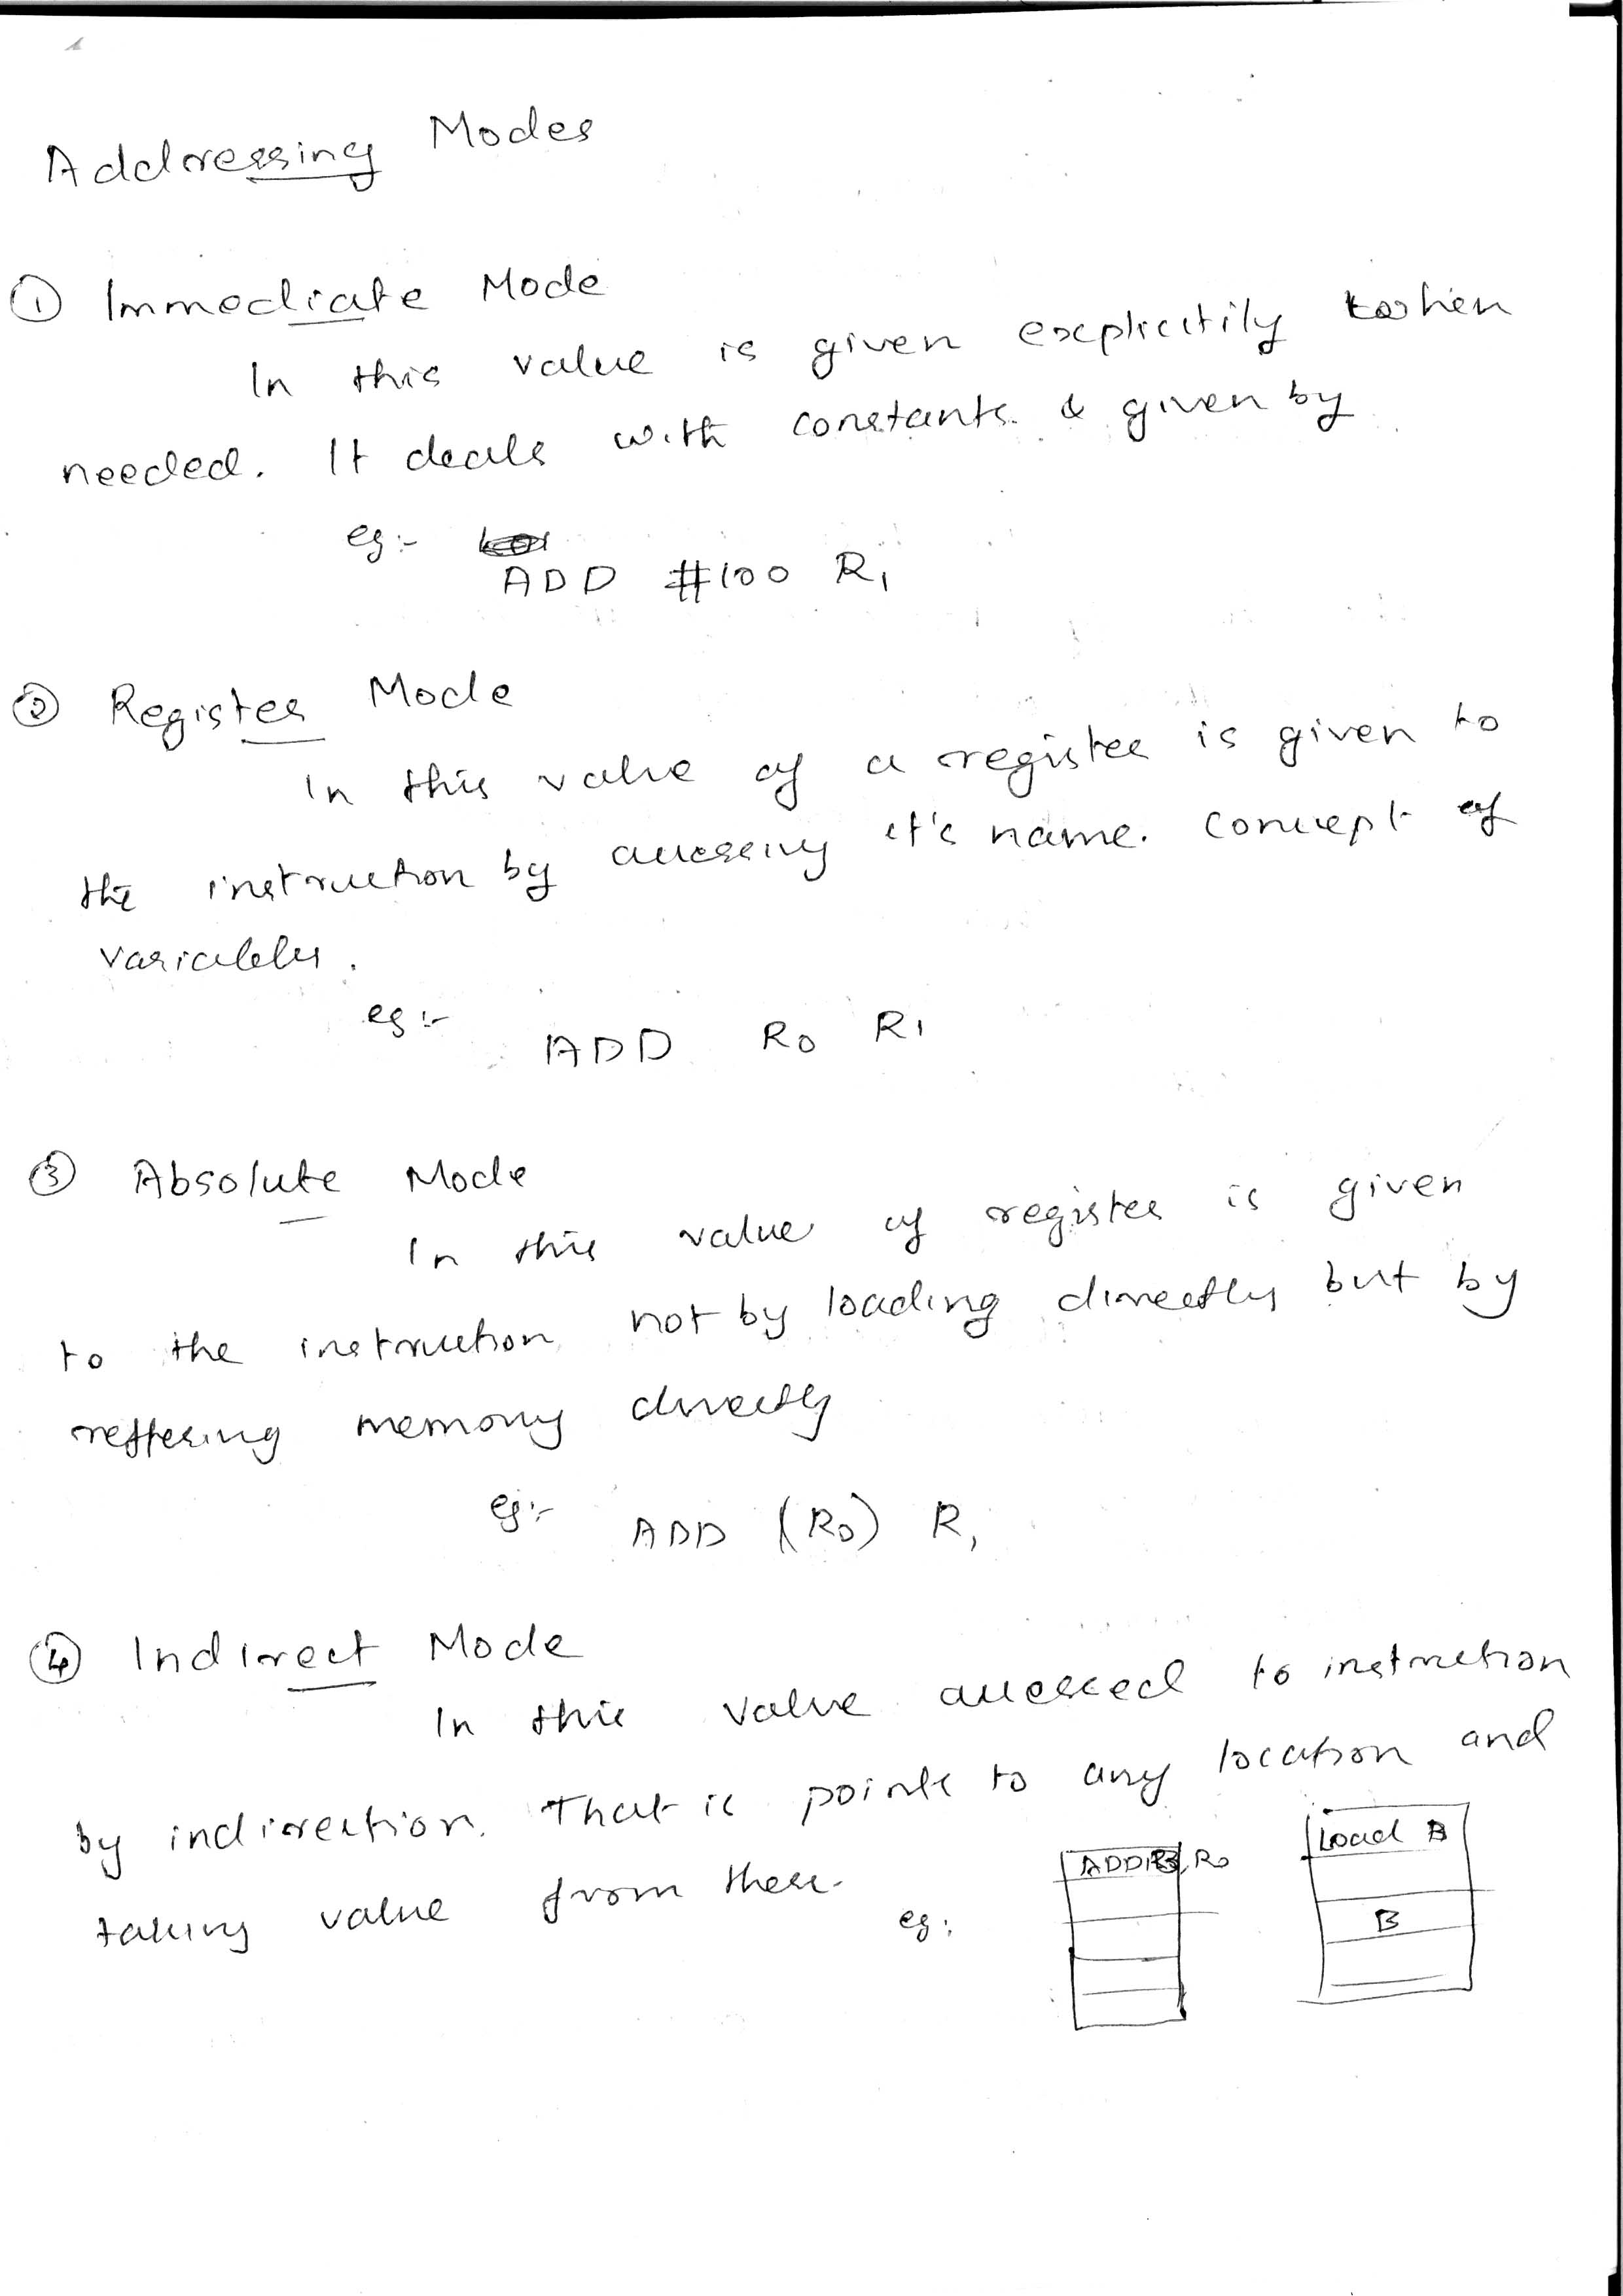 Addressing Modes
① Immediate Mode
In this value is given explicitily when
needed. It deals with constants. & given by
eg:-
ADD #100 R1
② Register Mode
In this value of a register is given to
the instruction by accessing it's name. Concept of
variables.
eg:-
ADD R0 R1
③ Absolute Mode
In this value of register is given
to the instruction not by loading directly but by
reffering memory directly
eg:- ADD (R0) R1
④ Indirect Mode
In this value accessed to instruction
by indirection. That is points to any location and
taking value from there.
eg:
ADD R0
Load B
B